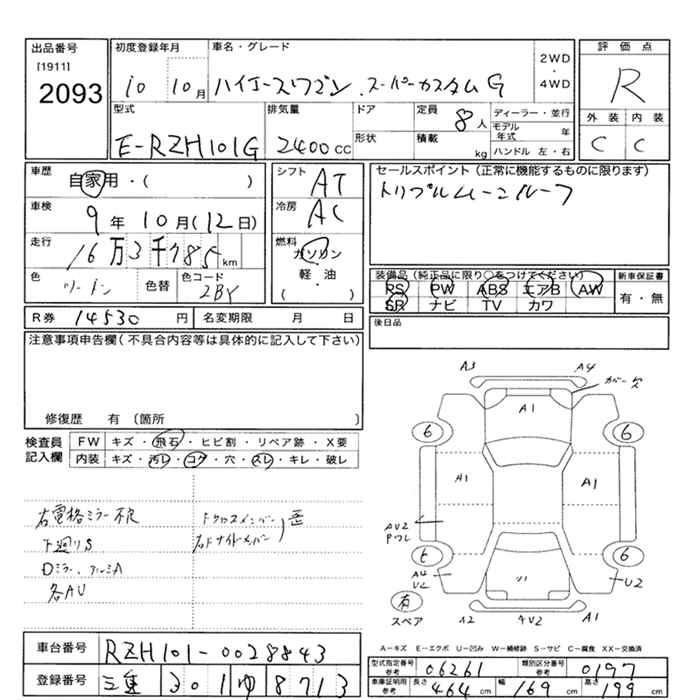 出品番号 初度登録年月 車名・グレード 2WD・4WD 評価点
[1911]
2093 10 10月 ハイエースワゴン.スーパーカスタムG R
型式 排気量 ドア 定員 8人 ディーラー・並行 外装 内装
E-RZH101G 2400cc 形状 積載 kg モデル年式 年 C C
ハンドル 左・右
車歴 自家用・( ) シフト AT セールスポイント(正常に機能するものに限ります)
車検 9年10月(12日) 冷房 AC トリプルムーンルーフ
走行 16万3千785km 燃料 ガソリン
色 ツートン 色替 色コード 2BY 軽・油・( )
装備品(純正品に限り○をつけてください) 新車保証書
PS PW ABS エアB AW 有・無
SR ナビ TV カワ
R券 14530円 名変期限 月 日 後日品
注意事項申告欄(不具合内容等は具体的に記入して下さい)
修復歴 有(箇所 )
検査員記入欄 FW キズ・飛石・ヒビ割・リペア跡・X要
内装 キズ・汚レ・コゲ・穴・スレ・キレ・破レ
右電格ミラー不良
下廻りS
各AU
A3 A4
カバー欠
A1
6 6
A1 A1
AU2
6
A4
U2 U2
有
スペア 4U2 A1
A-キズ E-エクボ U-凹み W-補修跡 S-サビ C-腐食 XX-交換済
車台番号 RZH101-0028843
型式指定番号 参考 06261 類別区分番号 参考 0197
登録番号 三重 301 ゆ 8713
車庫証明用 参考 長さ 464cm 幅 169cm 高さ 199cm